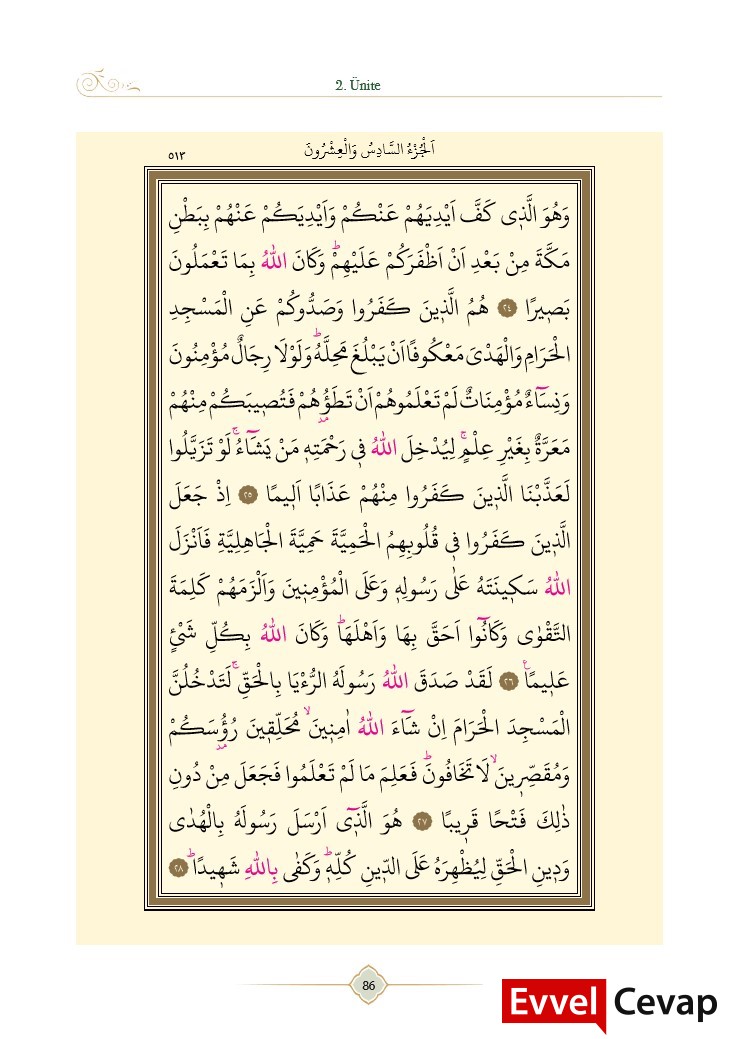 2. Ünite
اَلْجُزْءُ السَّادِسُ وَالْعِشْرُونَ
٥١٣
وَهُوَ الَّذ۪ي كَفَّ اَيْدِيَهُمْ عَنْكُمْ وَاَيْدِيَكُمْ عَنْهُمْ بِبَطْنِ
مَكَّةَ مِنْ بَعْدِ اَنْ اَظْفَرَكُمْ عَلَيْهِمْۜ وَكَانَ اللّٰهُ بِمَا تَعْمَلُونَ
بَص۪يرًا ﴿٢٤﴾ هُمُ الَّذ۪ينَ كَفَرُوا وَصَدُّوكُمْ عَنِ الْمَسْجِدِ
الْحَرَامِ وَالْهَدْيَ مَعْكُوفًا اَنْ يَبْلُغَ مَحِلَّهُۜ وَلَوْلَا رِجَالٌ مُؤْمِنُونَ
وَنِسَٓاءٌ مُؤْمِنَاتٌ لَمْ تَعْلَمُوهُمْ اَنْ تَطَؤُ۫هُمْ فَتُص۪يبَكُمْ مِنْهُمْ
مَعَرَّةٌ بِغَيْرِ عِلْمٍۚ لِيُدْخِلَ اللّٰهُ ف۪ي رَحْمَتِه۪ مَنْ يَشَٓاءُۚ لَوْ تَزَيَّلُوا
لَعَذَّبْنَا الَّذ۪ينَ كَفَرُوا مِنْهُمْ عَذَابًا اَل۪يمًا ﴿٢٥﴾ اِذْ جَعَلَ
الَّذ۪ينَ كَفَرُوا ف۪ي قُلُوبِهِمُ الْحَمِيَّةَ حَمِيَّةَ الْجَاهِلِيَّةِ فَاَنْزَلَ
اللّٰهُ سَك۪ينَتَهُ عَلٰى رَسُولِه۪ وَعَلَى الْمُؤْمِن۪ينَ وَاَلْزَمَهُمْ كَلِمَةَ
التَّقْوٰى وَكَانُٓوا اَحَقَّ بِهَا وَاَهْلَهَاۜ وَكَانَ اللّٰهُ بِكُلِّ شَيْءٍ
عَل۪يمًا۟ ﴿٢٦﴾ لَقَدْ صَدَقَ اللّٰهُ رَسُولَهُ الرُّءْيَا بِالْحَقِّۚ لَتَدْخُلُنَّ
الْمَسْجِدَ الْحَرَامَ اِنْ شَٓاءَ اللّٰهُ اٰمِن۪ينَۙ مُحَلِّق۪ينَ رُؤُ۫سَكُمْ
وَمُقَصِّر۪ينَۙ لَا تَخَافُونَۜ فَعَلِمَ مَا لَمْ تَعْلَمُوا فَجَعَلَ مِنْ دُونِ
ذٰلِكَ فَتْحًا قَر۪يبًا ﴿٢٧﴾ هُوَ الَّذ۪ٓي اَرْسَلَ رَسُولَهُ بِالْهُدٰى
وَد۪ينِ الْحَقِّ لِيُظْهِرَهُ عَلَى الدّ۪ينِ كُلِّه۪ۜ وَكَفٰى بِاللّٰهِ شَه۪يدًاۜ ﴿٢٨﴾
86
Evvel Cevap